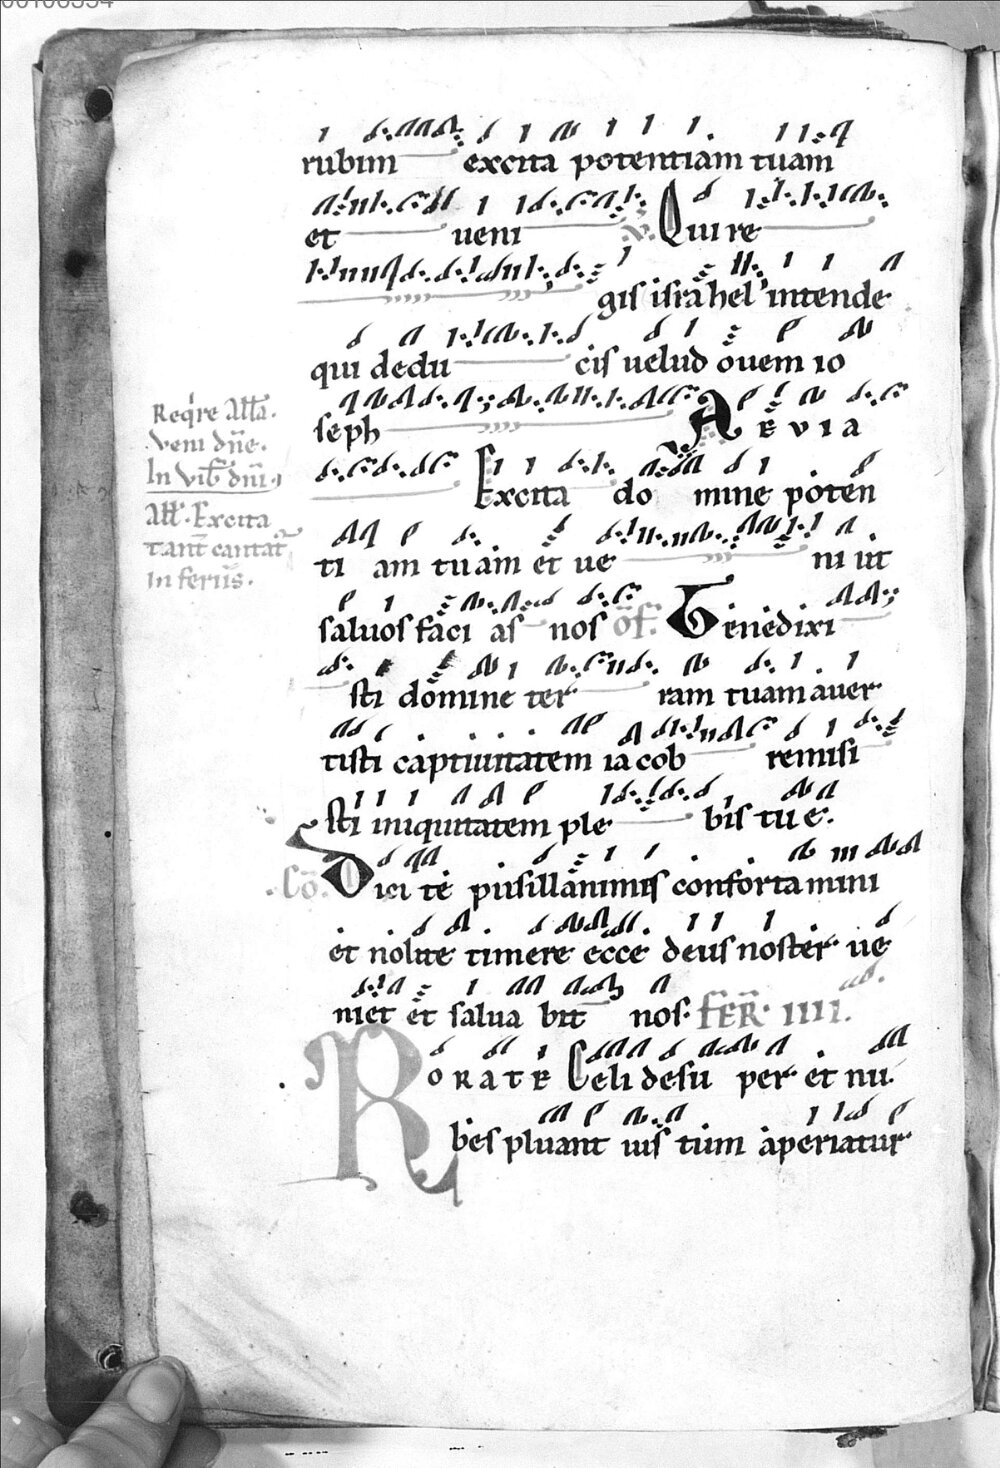 rubim excita potentiam tuam
et ueni v. Qui re
gis israhel intende
qui dedu cis uelud ouem io
seph AEVIA
Excita do mine poten
ti am tuam et ue ni ut
saluos faci as nos of. Benedixi
sti domine ter ram tuam auer
tisti captiuitatem iacob remisi
sti iniquitatem ple bis tue.
Co. Dici te pusillanimis confortamini
et nolite timere ecce deus noster ue
niet et salua bit nos. FER. IIII.
RORATE Celi desu per et nu
bes pluant ius tum aperiatur
Reqre Alla.
Veni dne.
In Vib dni
All. Excita
tant cantat
in feriis.